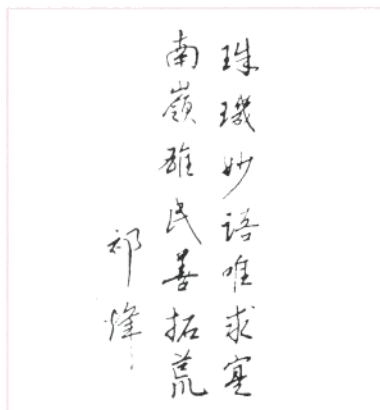 珠璣妙語唯求实
南嶺雄民善拓荒
祁烽